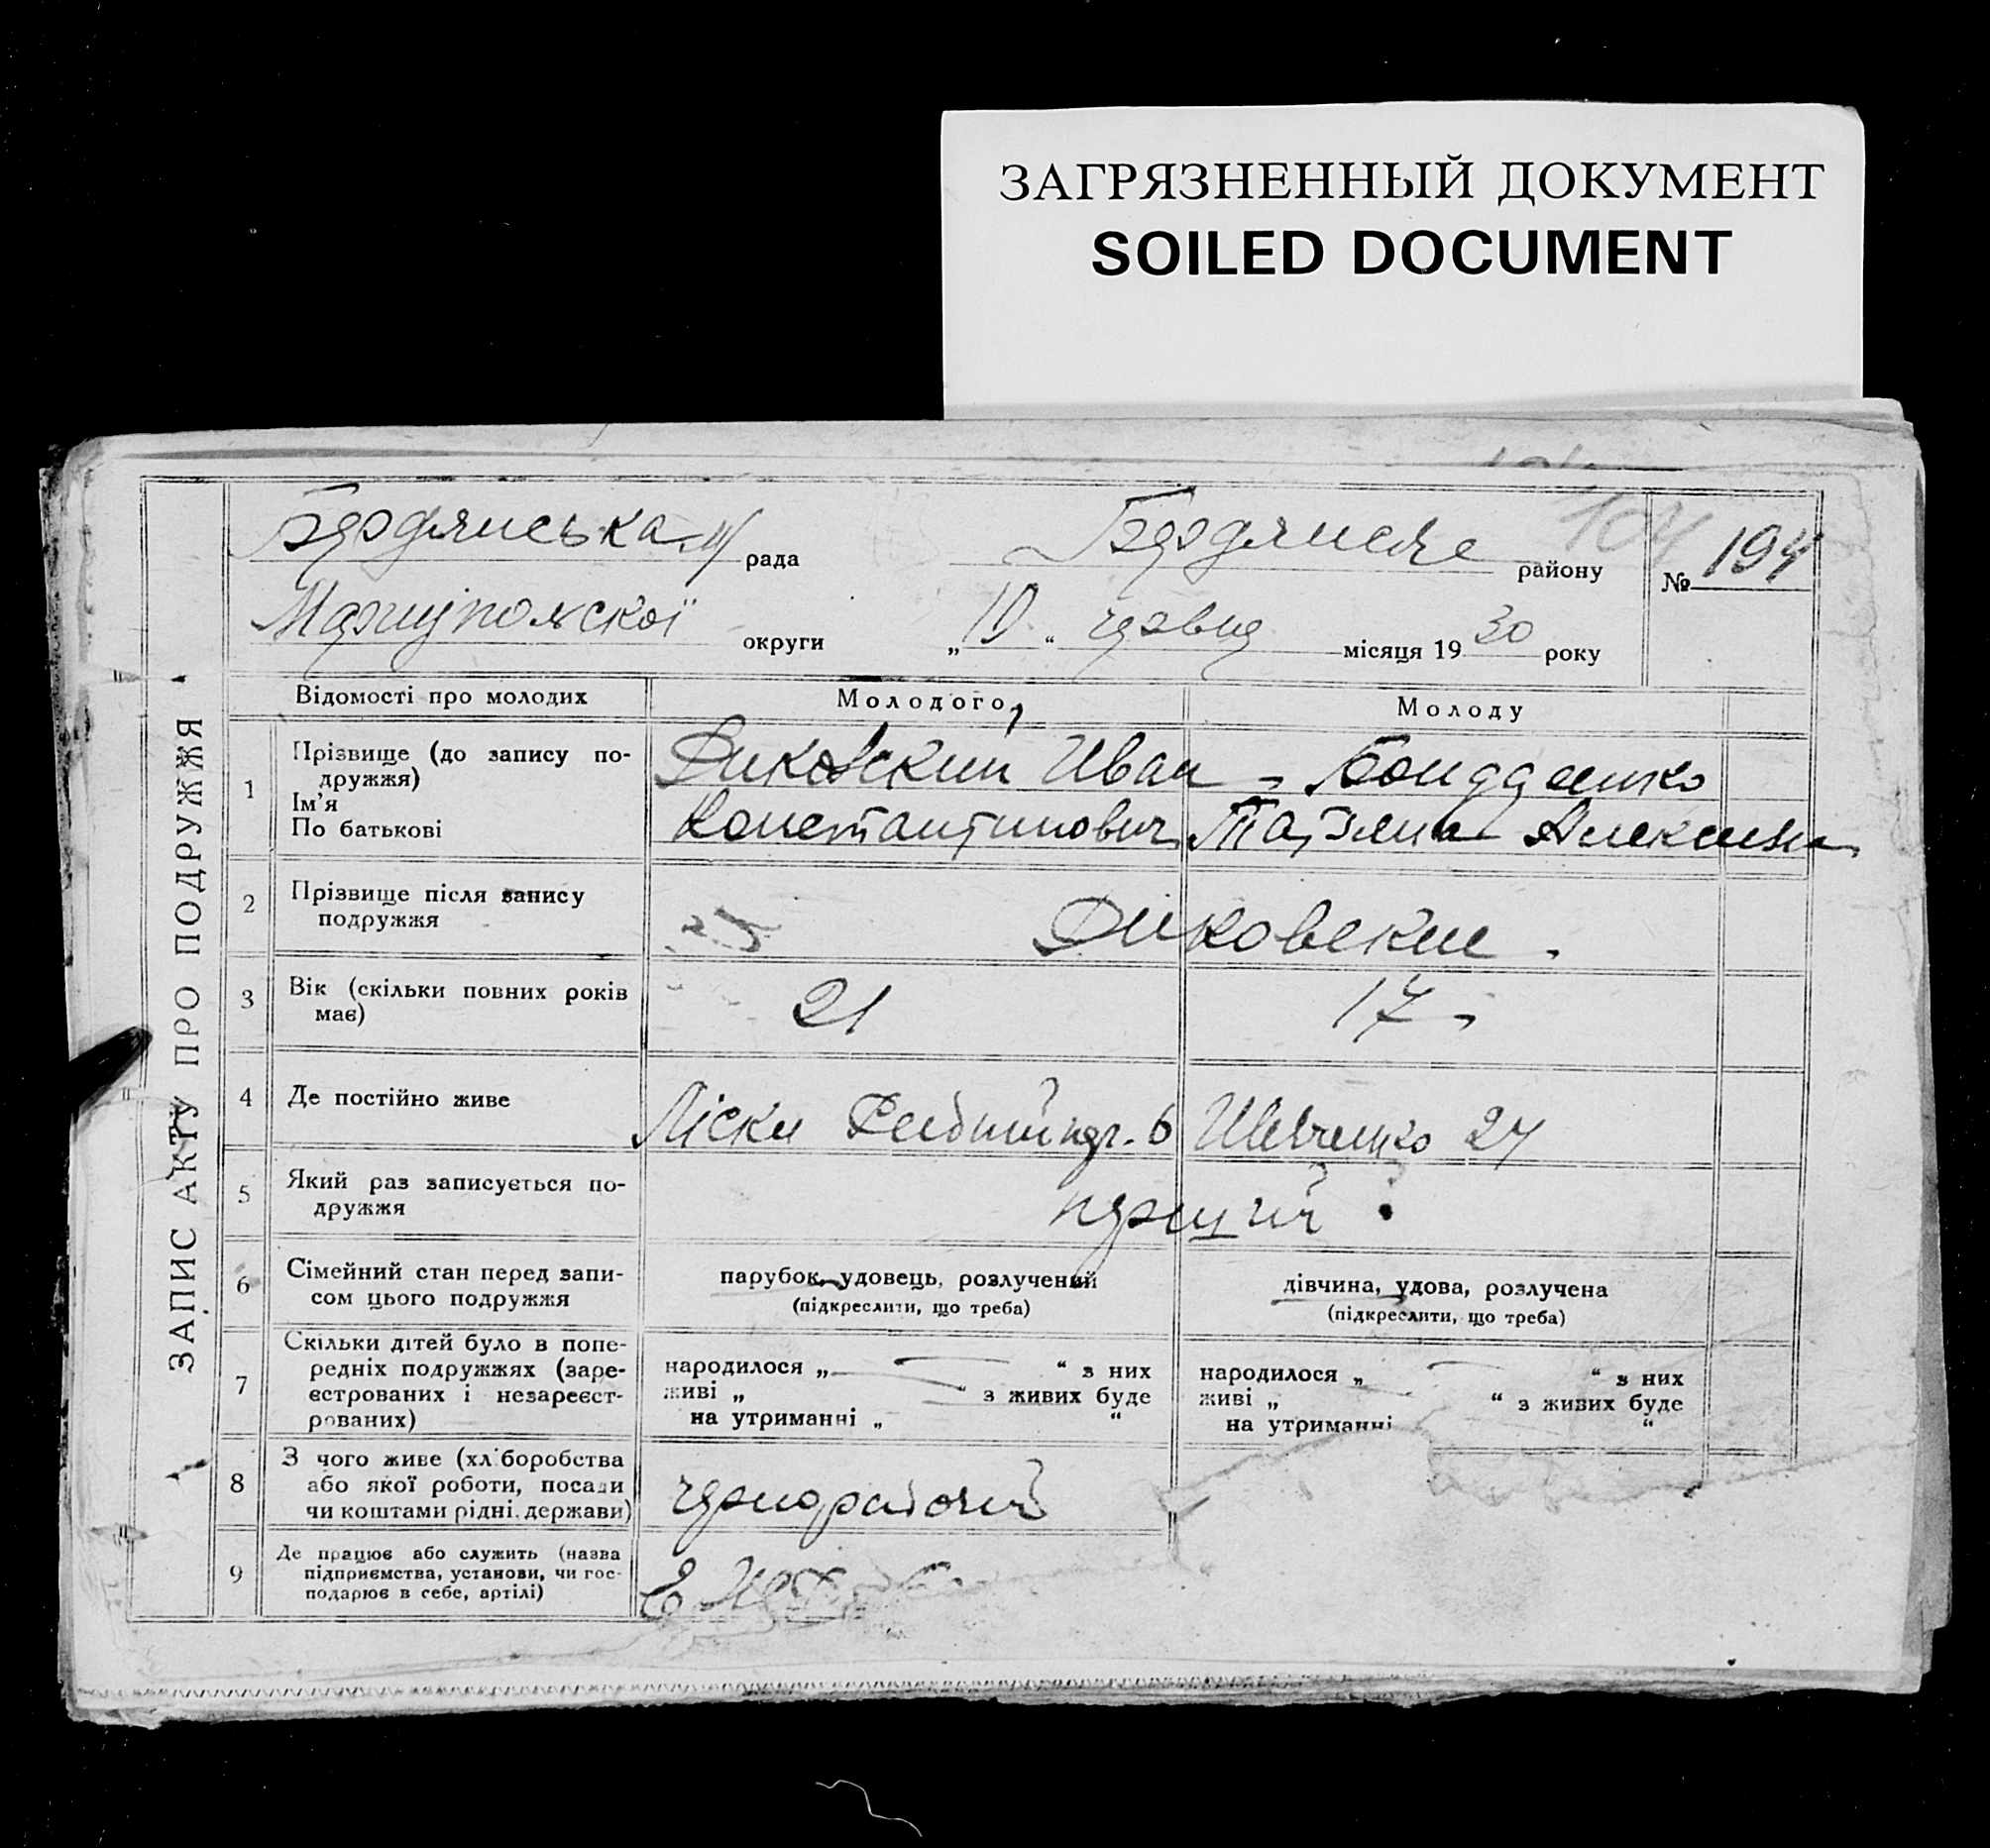 ЗАГРЯЗНЕННЫЙ ДОКУМЕНТ
SOILED DOCUMENT
ЗАПИС АКТУ ПРО ПОДРУЖЖЯ
Бердянська м/ рада Бердянське району № 194
104
Маріупольскої округи „10“ червня місяця 1930 року
Відомості про молодих Молодого Молоду
1 Прізвище (до запису по-
дружжя)
Ім'я
По батькові
Диковский Иван - Бондаренко
Константинович Татяна Алексеевна
2 Прізвище після запису
подружжя
Диковские.
3 Вік (скільки повних років
має)
21 17
4 Де постійно живе Ліски 6 Шевченко 27
5 Який раз записується по-
дружжя
перший
6 Сімейний стан перед запи-
сом цього подружжя
парубок, удовець, розлучений
(підкреслити, що треба)
дівчина, удова, розлучена
(підкреслити, що треба)
7 Скільки дітей було в попе-
редніх подружжях (заре-
єстрованих і незареєст-
рованих)
народилося „ “ з них
живі „ “ з живих буде
на утриманні „ “
народилося „ “ з них
живі „ “ з живих буде
на утриманні “
8 З чого живе (хліборобства
або якої роботи, посади
чи коштами рідні, держави)
чернорабочий
9 Де працює або служить (назва
підприємства, установи, чи гос-
подарює в себе, артілі)